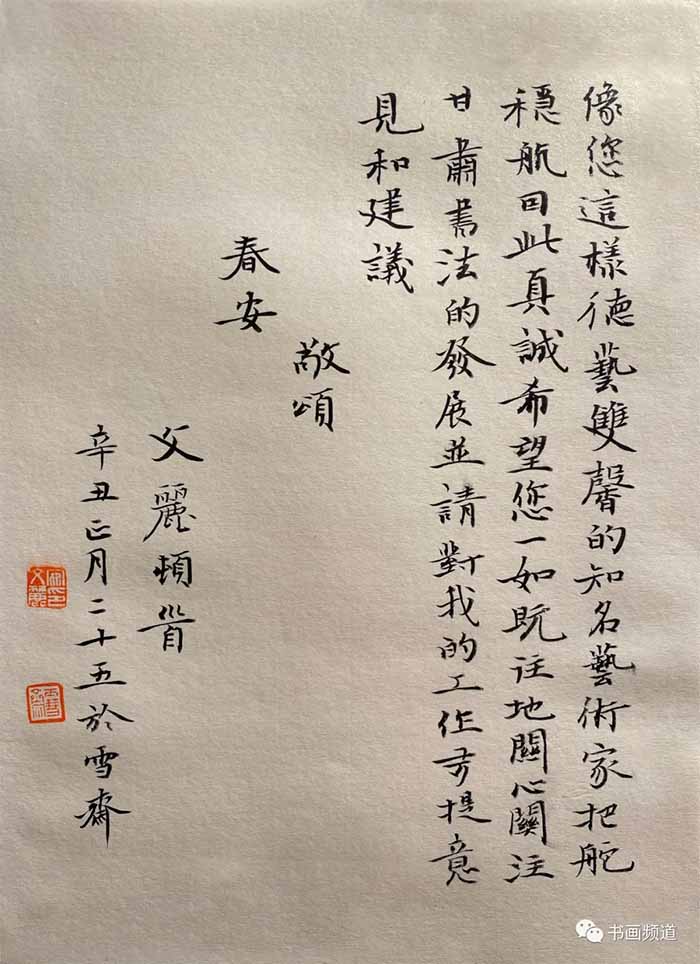 像您這樣德藝雙馨的知名藝術家把舵
穩航回此真誠希望您一如既往地關心關注
甘肅書法的發展並請對我的工作多提意
見和建議
敬頌
春安
文麗頓首
辛丑正月二十五於雪齋
书画频道